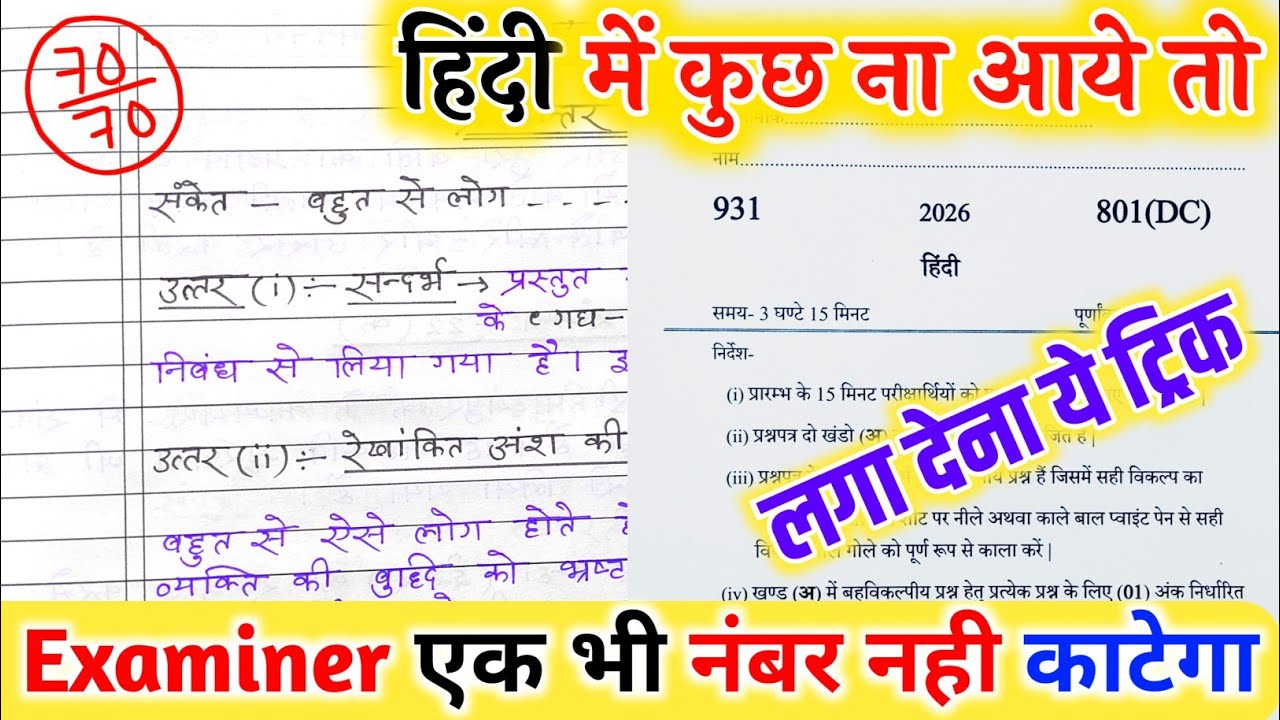 हिंदी में कुछ ना आये तो
70
70
संकेत - बहुत से लोग - - - -
उत्तर (i) :- सन्दर्भ → प्रस्तुत
के गद्य-
निबंध से लिया गया है।
उत्तर (ii) :- रेखांकित अंश की
बहुत से ऐसे लोग होते
व्यक्ति की बुद्धि को भ्रष्ट
नाम
931 2026 801(DC)
हिंदी
समय- 3 घण्टे 15 मिनट
निर्देश-
(i) प्रारम्भ के 15 मिनट परीक्षार्थियों को
(ii) प्रश्नपत्र दो खंडो (अ)
(iii) प्रश्नपत्र प्रश्न हैं जिसमें सही विकल्प का
पर नीले अथवा काले बाल प्वाइंट पेन से सही
गोले को पूर्ण रूप से काला करें |
(iv) खण्ड (अ) में बहुविकल्पीय प्रश्न हेतु प्रत्येक प्रश्न के लिए (01) अंक निर्धारित
लगा देना ये ट्रिक
Examiner एक भी नंबर नही काटेगा